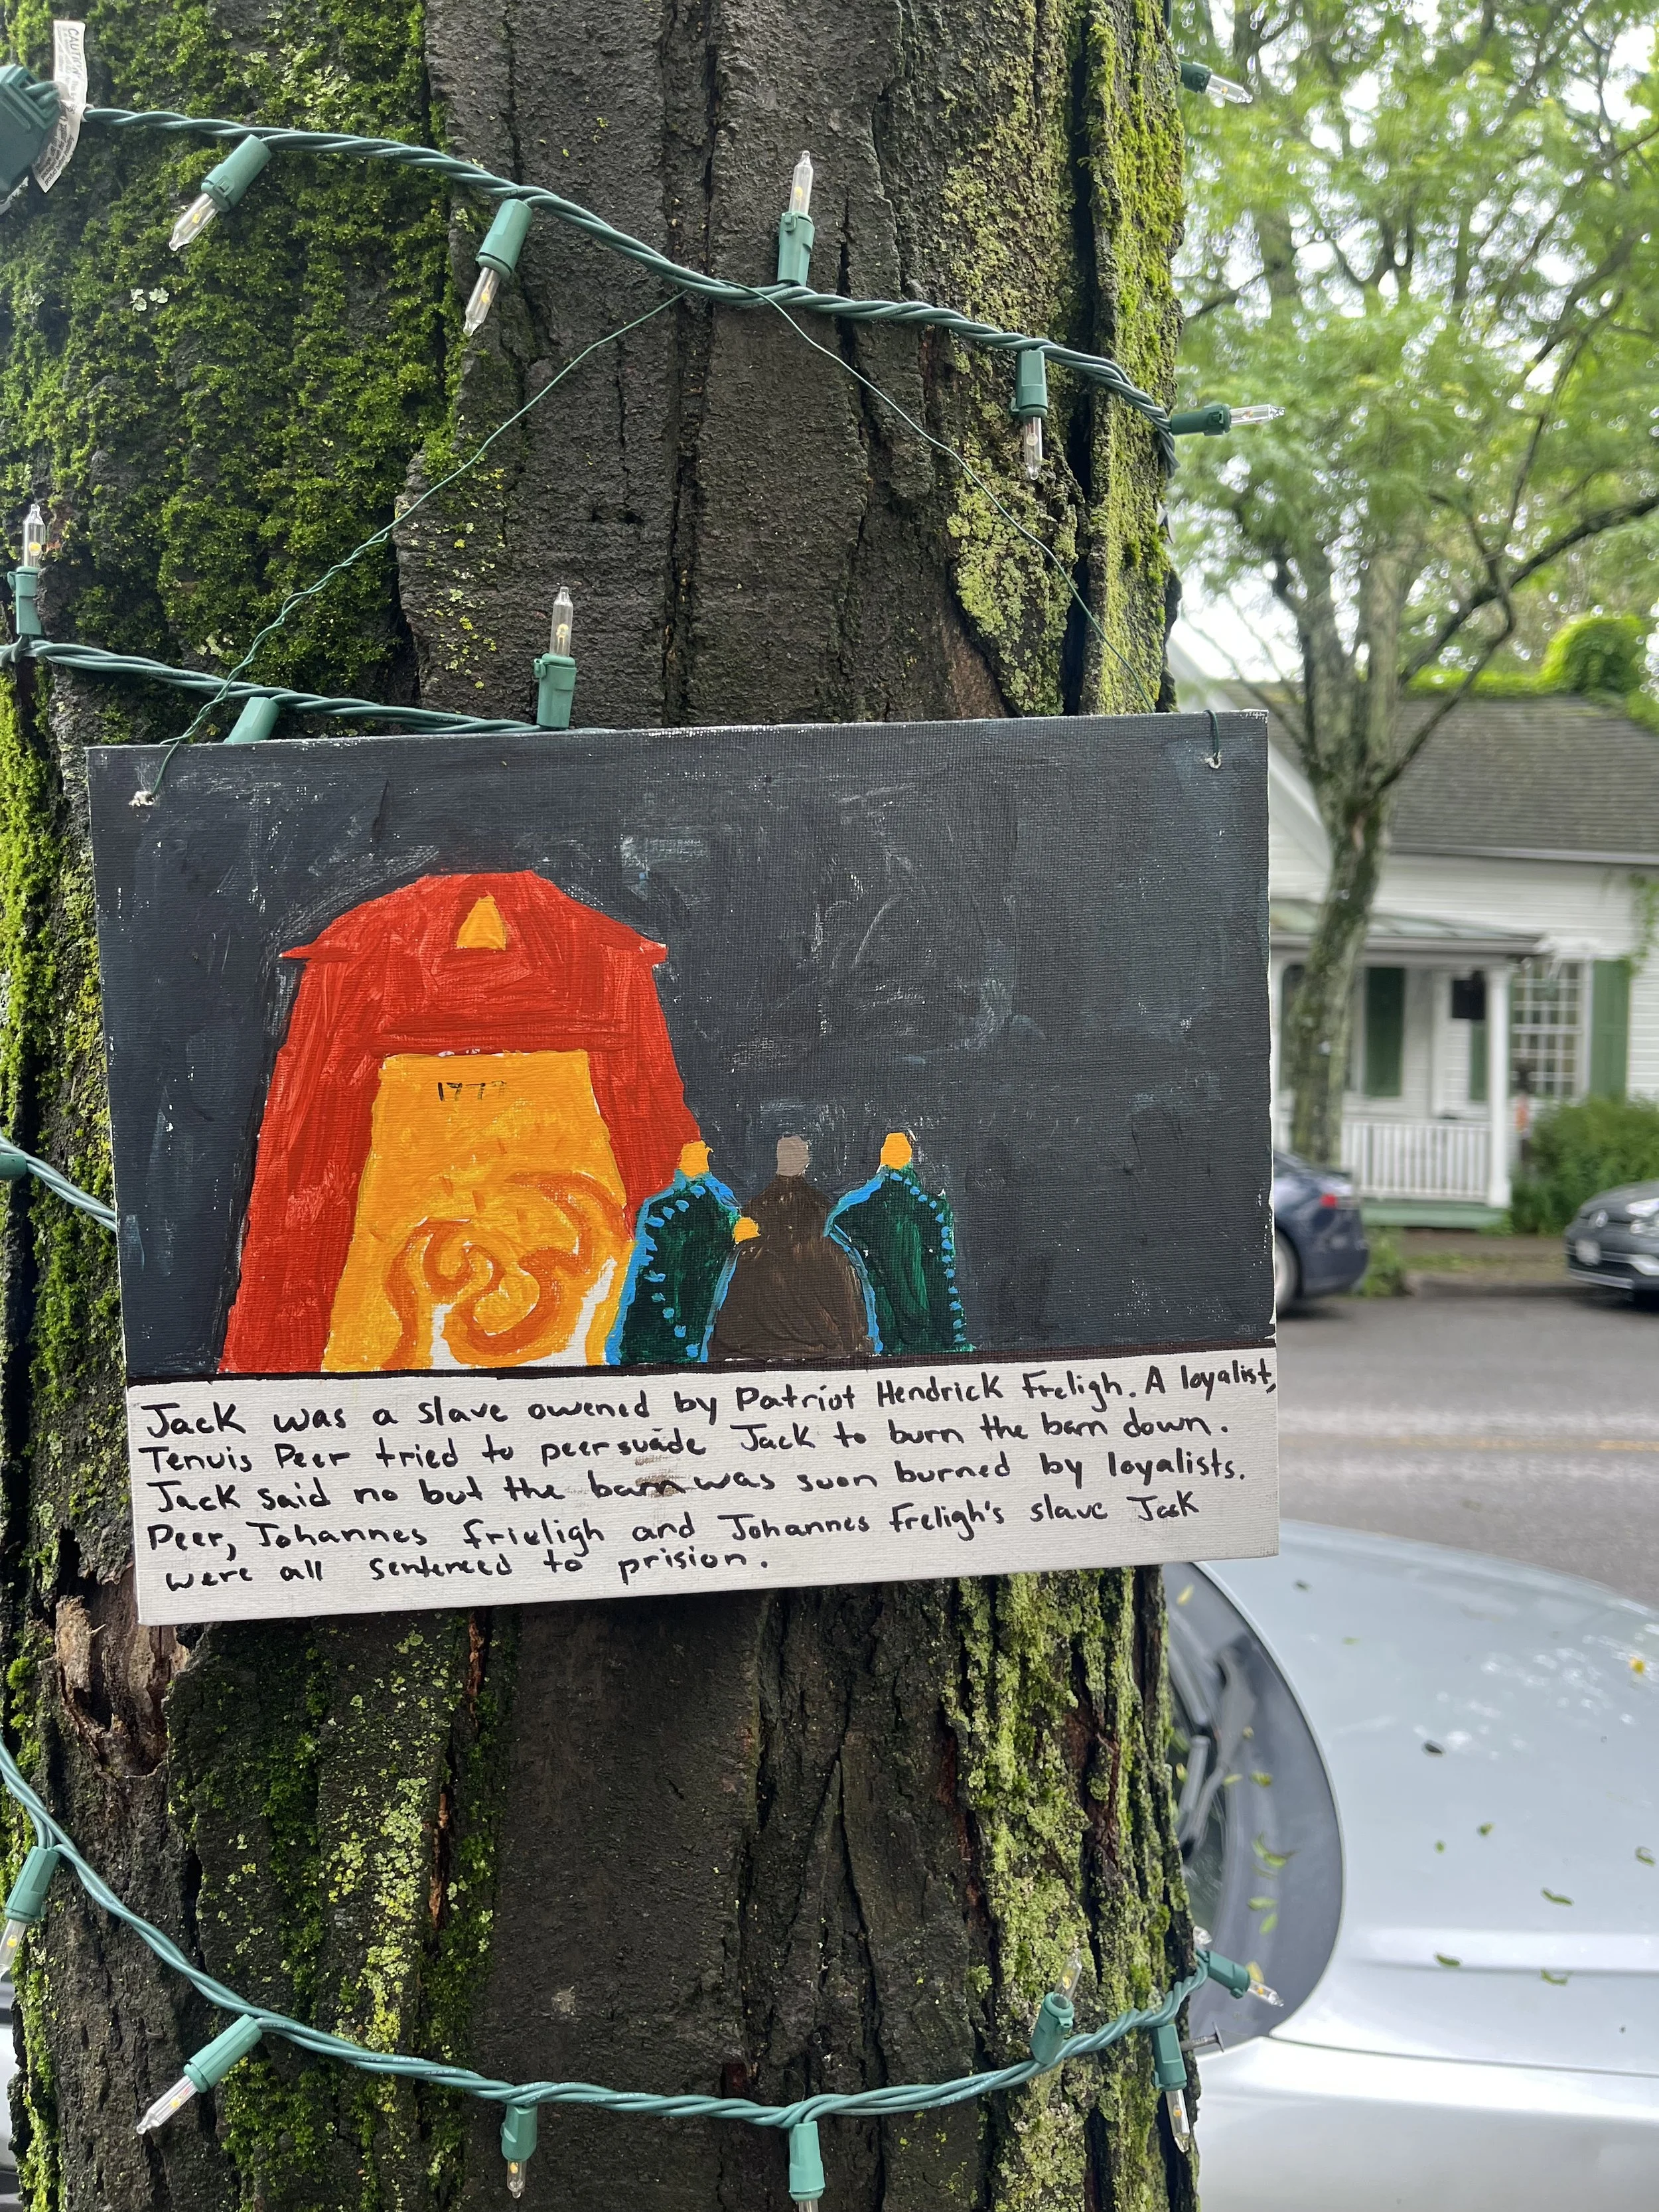 CAUTION
1777
Jack was a slave owened by Patriot Hendrick Freligh. A loyalist,
Tenuis Peer tried to peersuade Jack to burn the barn down.
Jack said no but the barn was soon burned by loyalists.
Peer, Johannes frieligh and Johannes Freligh's slave Jack
were all sentenced to prision.